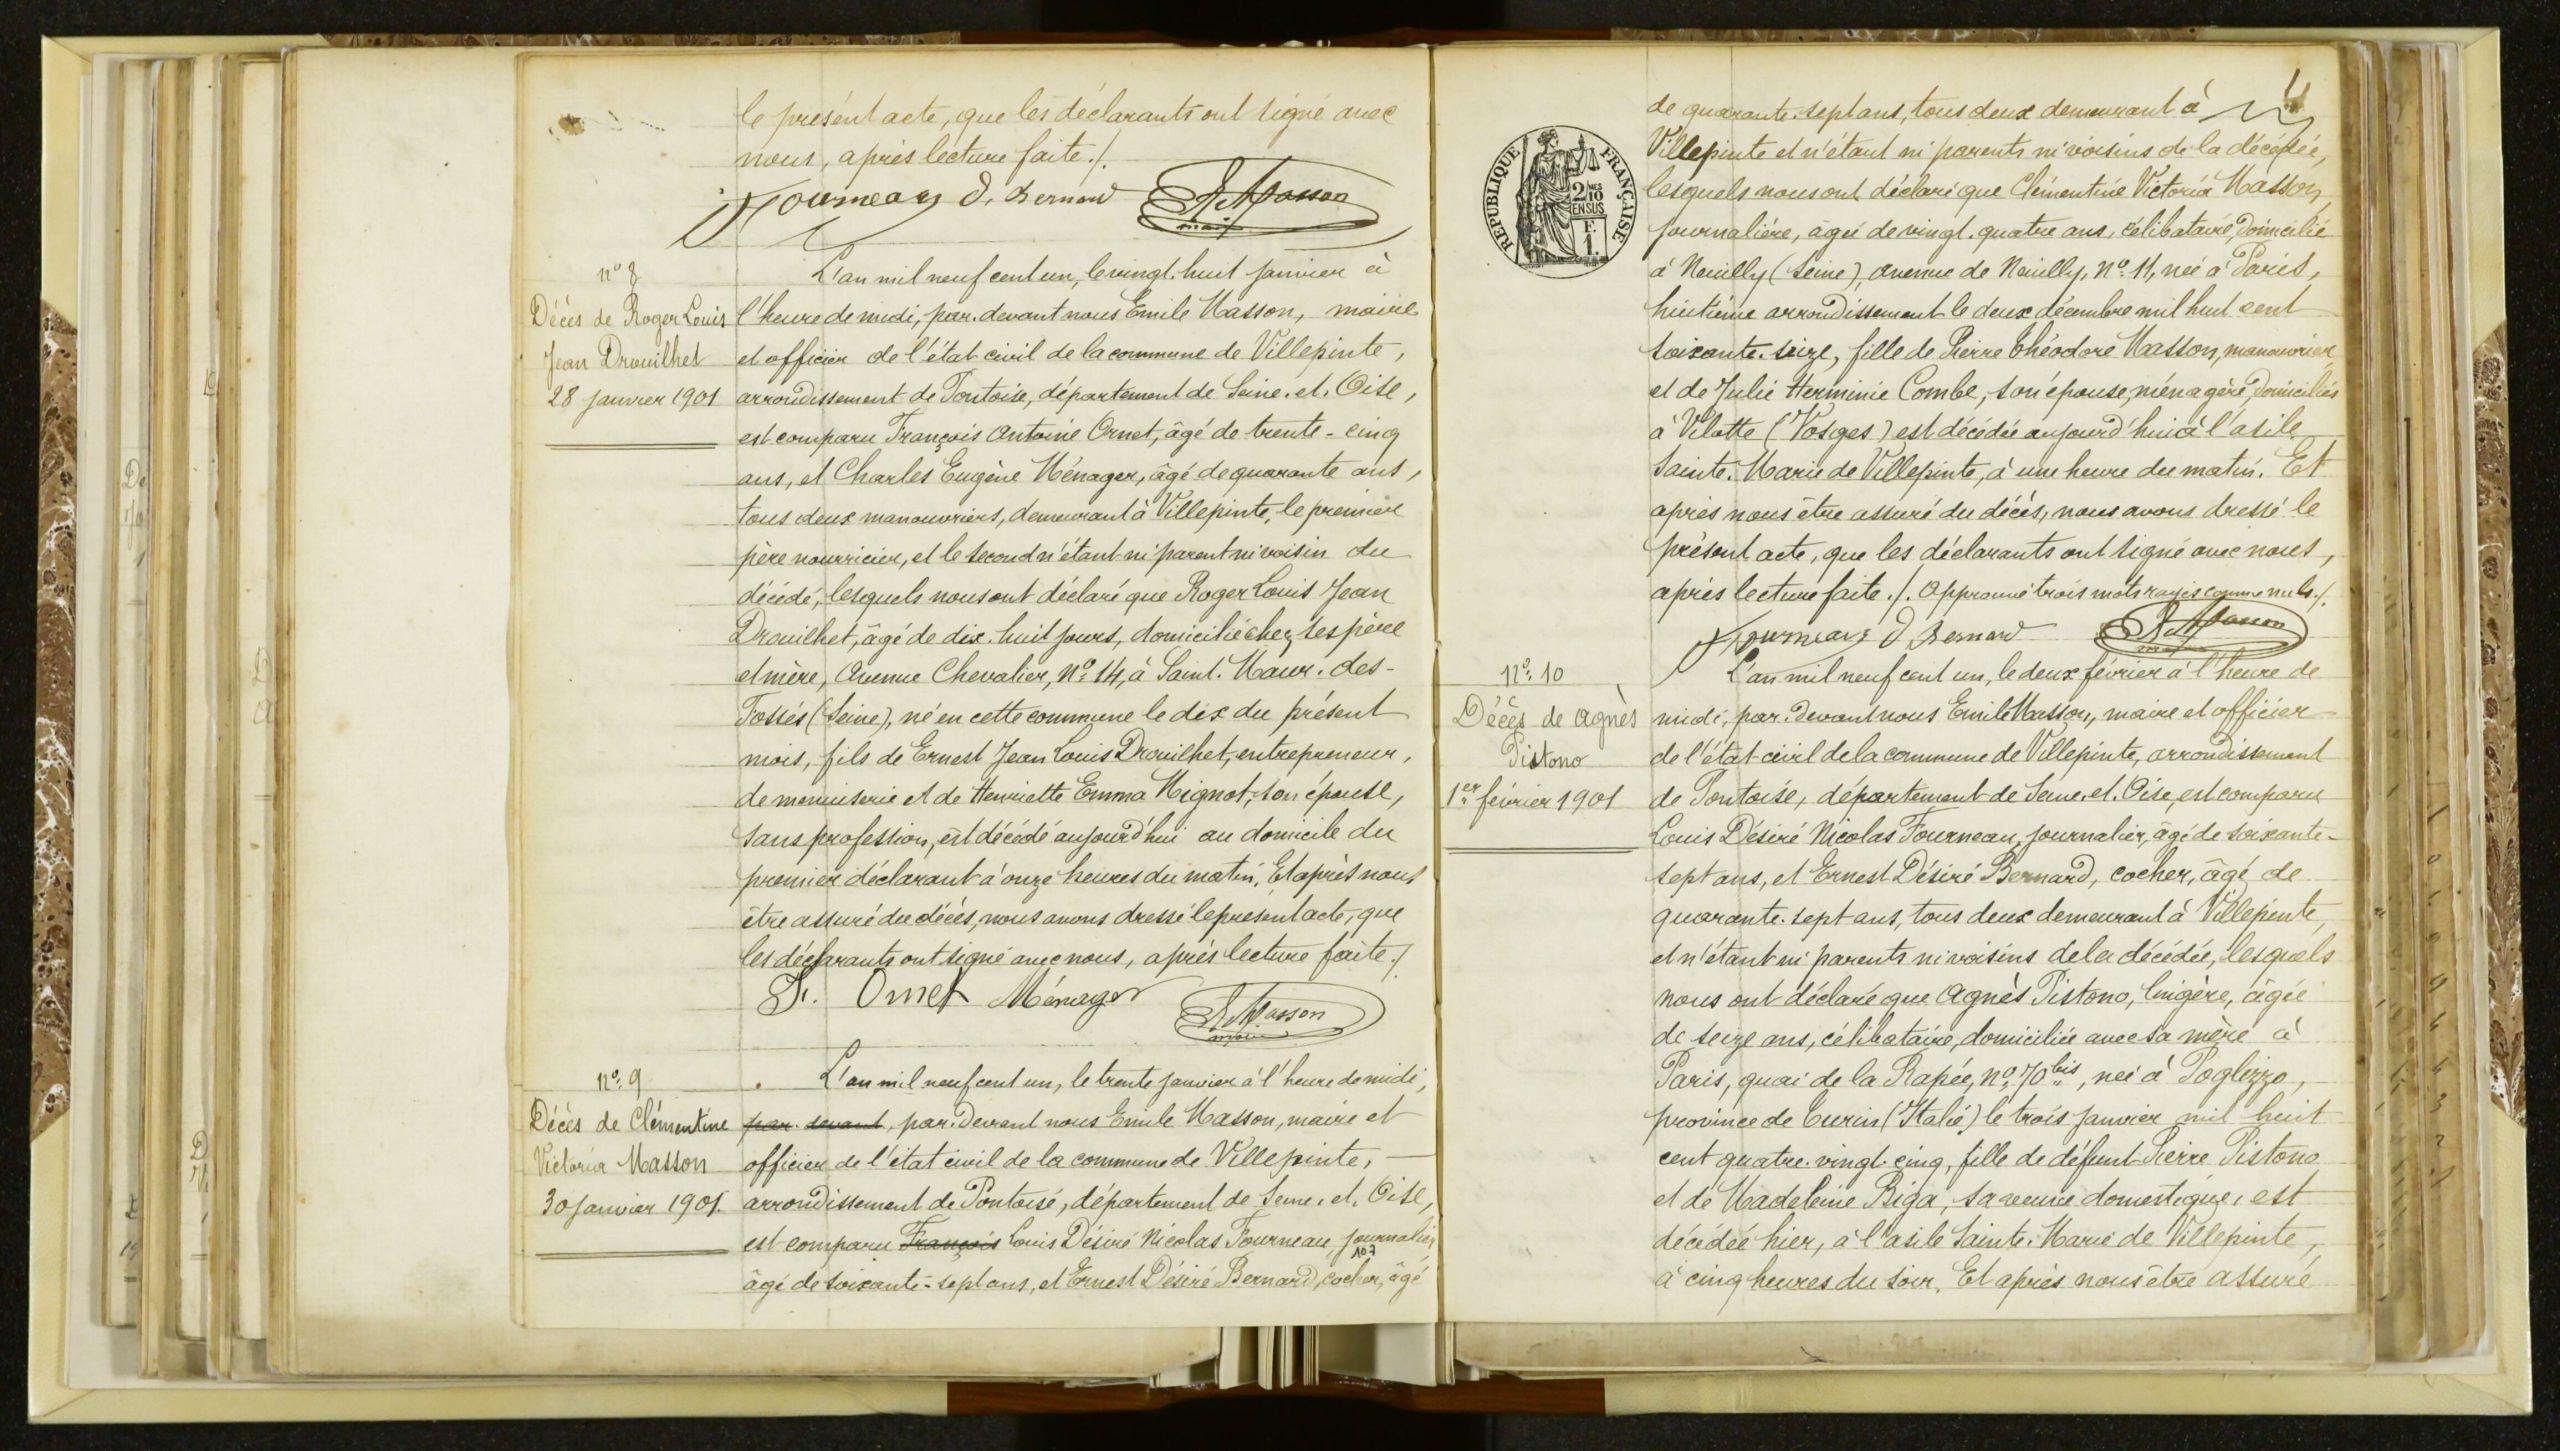 le présent acte, que les déclarants ont signé avec
nous, après lecture faite./.
Fourneau D. Bernard E. Masson
maire
n° 8
Décès de Roger Louis
Jean Drouilhet
28 janvier 1901
L'an mil neuf cent un, le vingt-huit janvier à
l'heure de midi, par-devant nous Emile Masson, maire
et officier de l'état civil de la commune de Villepinte,
arrondissement de Pontoise, département de Seine-et-Oise,
est comparu François Antoine Ornet, âgé de trente-cinq
ans, et Charles Eugène Ménager, âgé de quarante ans,
tous deux manouvriers, demeurant à Villepinte, le premier
père nourricier, et le second n'étant ni parent ni voisin du
décédé, lesquels nous ont déclaré que Roger Louis Jean
Drouilhet, âgé de dix-huit jours, domicilié chez ses père
et mère, Avenue Chevalier, N° 14, à Saint-Maur-des-
Fossés (Seine), né en cette commune le dix du présent
mois, fils de Ernest Jean Louis Drouilhet, entrepreneur,
de menuiserie et de Henriette Emma Mignot, son épouse,
sans profession, est décédé aujourd'hui au domicile du
premier déclarant à onze heures du matin. Et après nous
être assuré du décès, nous avons dressé le présent acte, que
les déclarants ont signé avec nous, après lecture faite./
F. Ornet Ménager E. Masson
maire
n° 9
Décès de Clémentine
Victoria Masson
30 janvier 1901.
L'an mil neuf cent un, le trente janvier à l'heure de midi,
par-devant, par-devant nous Emile Masson, maire et
officier de l'état civil de la commune de Villepinte,
arrondissement de Pontoise, département de Seine-et-Oise,
est comparu François Louis Désiré Nicolas Fourneau, journalier,
107
âgé de soixante-sept ans, et Ernest Désiré Bernard, cocher, âgé
4
REPUBLIQUE FRANÇAISE
2/10 EN SUS
F. 1.
de quarante-sept ans, tous deux demeurant à
Villepinte et n'étant ni parents ni voisins de la décédée,
lesquels nous ont déclaré que Clémentine Victoria Masson,
journalière, âgée de vingt-quatre ans, célibataire, domicilié
à Neuilly (Seine), avenue de Neuilly, N° 11, née à Paris,
huitième arrondissement le deux décembre mil huit cent
soixante-seize, fille de Pierre Théodore Masson, manouvrier
et de Julie Herminie Combe, son épouse, ménagère, domiciliés
à Vilotte (Vosges) est décédée aujourd'hui à l'asile
Sainte-Marie de Villepinte, à une heure du matin. Et
après nous être assuré du décès, nous avons dressé le
présent acte, que les déclarants ont signé avec nous,
après lecture faite./. Approuvé trois mots rayés comme nuls./.
Fourneau D Bernard E. Masson
maire
N° 10
Décès de Agnès
Pistono
1er février 1901
L'an mil neuf cent un, le deux février à l'heure de
midi, par-devant nous Emile Masson, maire et officier
de l'état civil de la commune de Villepinte, arrondissement
de Pontoise, département de Seine-et-Oise, est comparu
Louis Désiré Nicolas Fourneau, journalier, âgé de soixante-
sept ans, et Ernest Désiré Bernard, cocher, âgé de
quarante-sept ans, tous deux demeurant à Villepinte,
et n'étant ni parents ni voisins de la décédée, lesquels
nous ont déclaré que Agnès Pistono, lingère, âgée
de seize ans, célibataire, domiciliée avec sa mère à
Paris, quai de la Rapée, N° 70 bis, née à Foglizzo,
province de Turin (Italie) le trois janvier mil huit
cent quatre-vingt-cinq, fille de défunt Pierre Pistono
et de Madeleine Biga, sa veuve domestique, est
décédée hier, à l'asile Sainte-Marie de Villepinte,
à cinq heures du soir. Et après nous être assuré